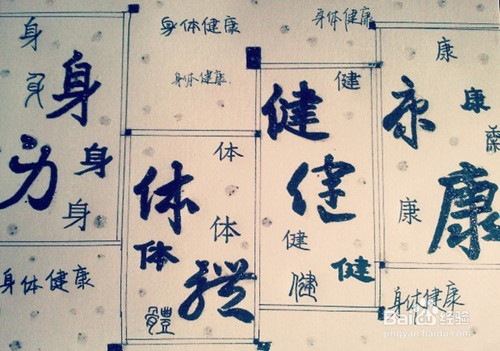 身
身
身
身
身
身
身体健康
身体健康
体
体
体
体
體
體
身体健康
健
健
健
健
健
健
身体健康
康
康
康
康
康
康
身体健康
Bai 经验
jingyan.baidu.com